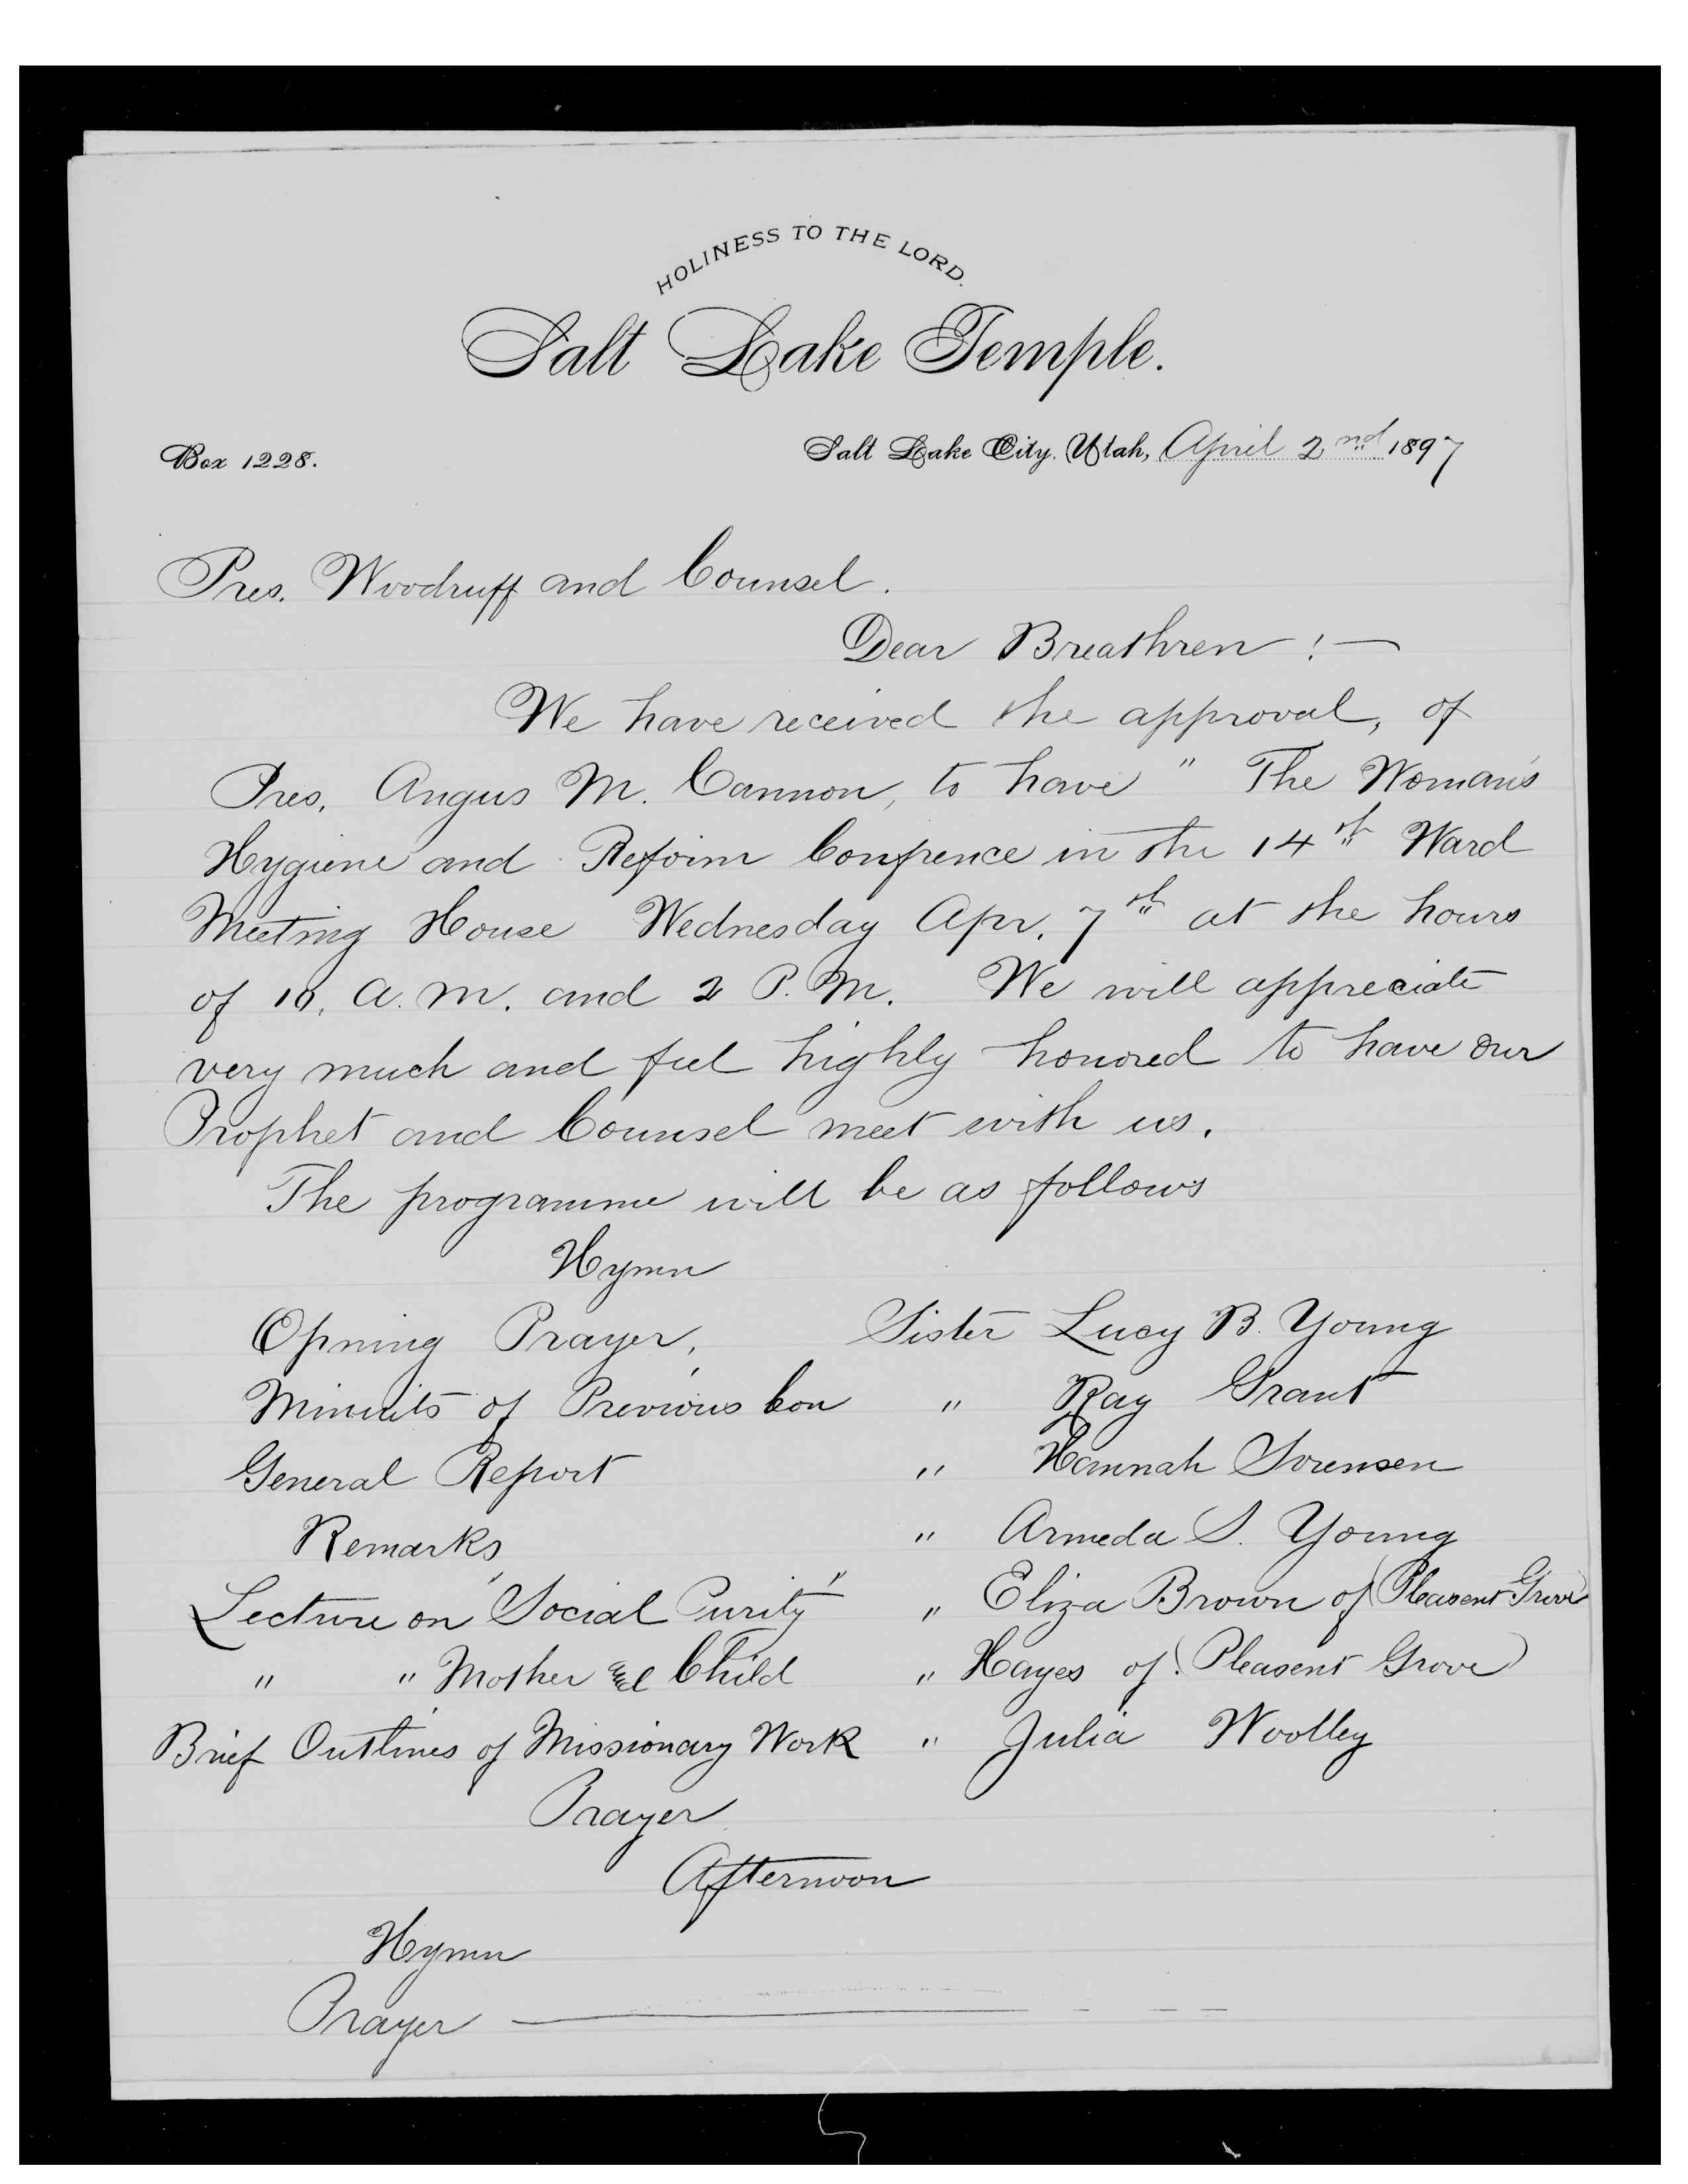 HOLINESS TO THE LORD.
Salt Lake Temple.
Box 1228.
Salt Lake City, Utah, April 2nd 1897
Pres. Woodruff and Counsel.
Dear Breathren :—
We have received the approval, of
Pres. Angus M. Cannon, to have " The Woman's
Hygiene and Reform Confrence in the 14th Ward
Meeting House Wednesday Apr. 7th at the hours
of 10, A.M. and 2 P.M. We will appreciate
very much and feel highly honored to have our
Prophet and Counsel meet with us.
The programme will be as follows
Hymn
Opning Prayer, Sister Lucy B. Young
Minuits of Previous Con " Ray Grant
General Report " Hannah Sorensen
Remarks " Armeda S. Young
Lecture on "Social Purity" " Eliza Brown of (Pleasent Grove
" " Mother and Child " Hayes of (Pleasent Grove)
Brief Outlines of Missionary Work " Julia Woolley
Prayer
Afternoon
Hymn
Prayer ———